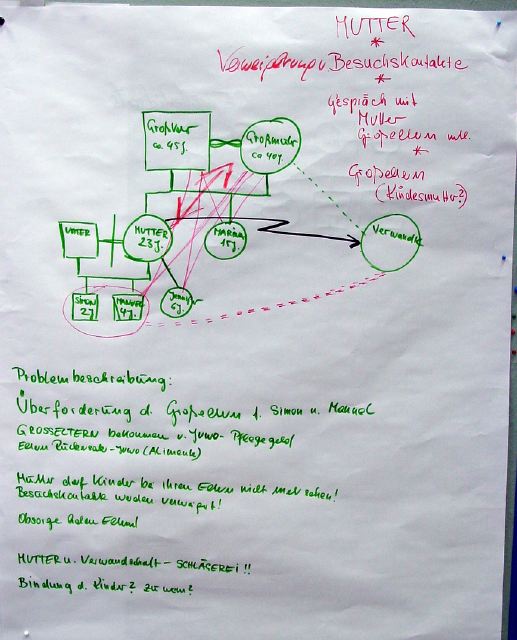 MUTTER
*
Verweigerung v. Besuchskontakte
*
Gespräch mit
Mutter
Großeltern
*
Großeltern
(Kindesmutter?)
Großvater
ca. 45 J.
Großmutter
ca 40 J.
VATER
MUTTER
23 J.
MARINA
15 J.
Verwandte
SIMON
2 J
MANUEL
4 J.
Jennifer
6 J.
Problembeschreibung:
Überforderung d. Großeltern f. Simon u. Manuel
GROSSELTERN bekommen v. JUWO - Pflegegeld
Eltern - JUWO (Alimente)
Mutter darf Kinder bei ihren Eltern nicht mehr sehen!
Besuchskontakte werden verweigert!
Obsorge haben Eltern!
MUTTER u. Verwandschaft - SCHLÄGEREI!!
Bindung d. Kinder? zu wem?